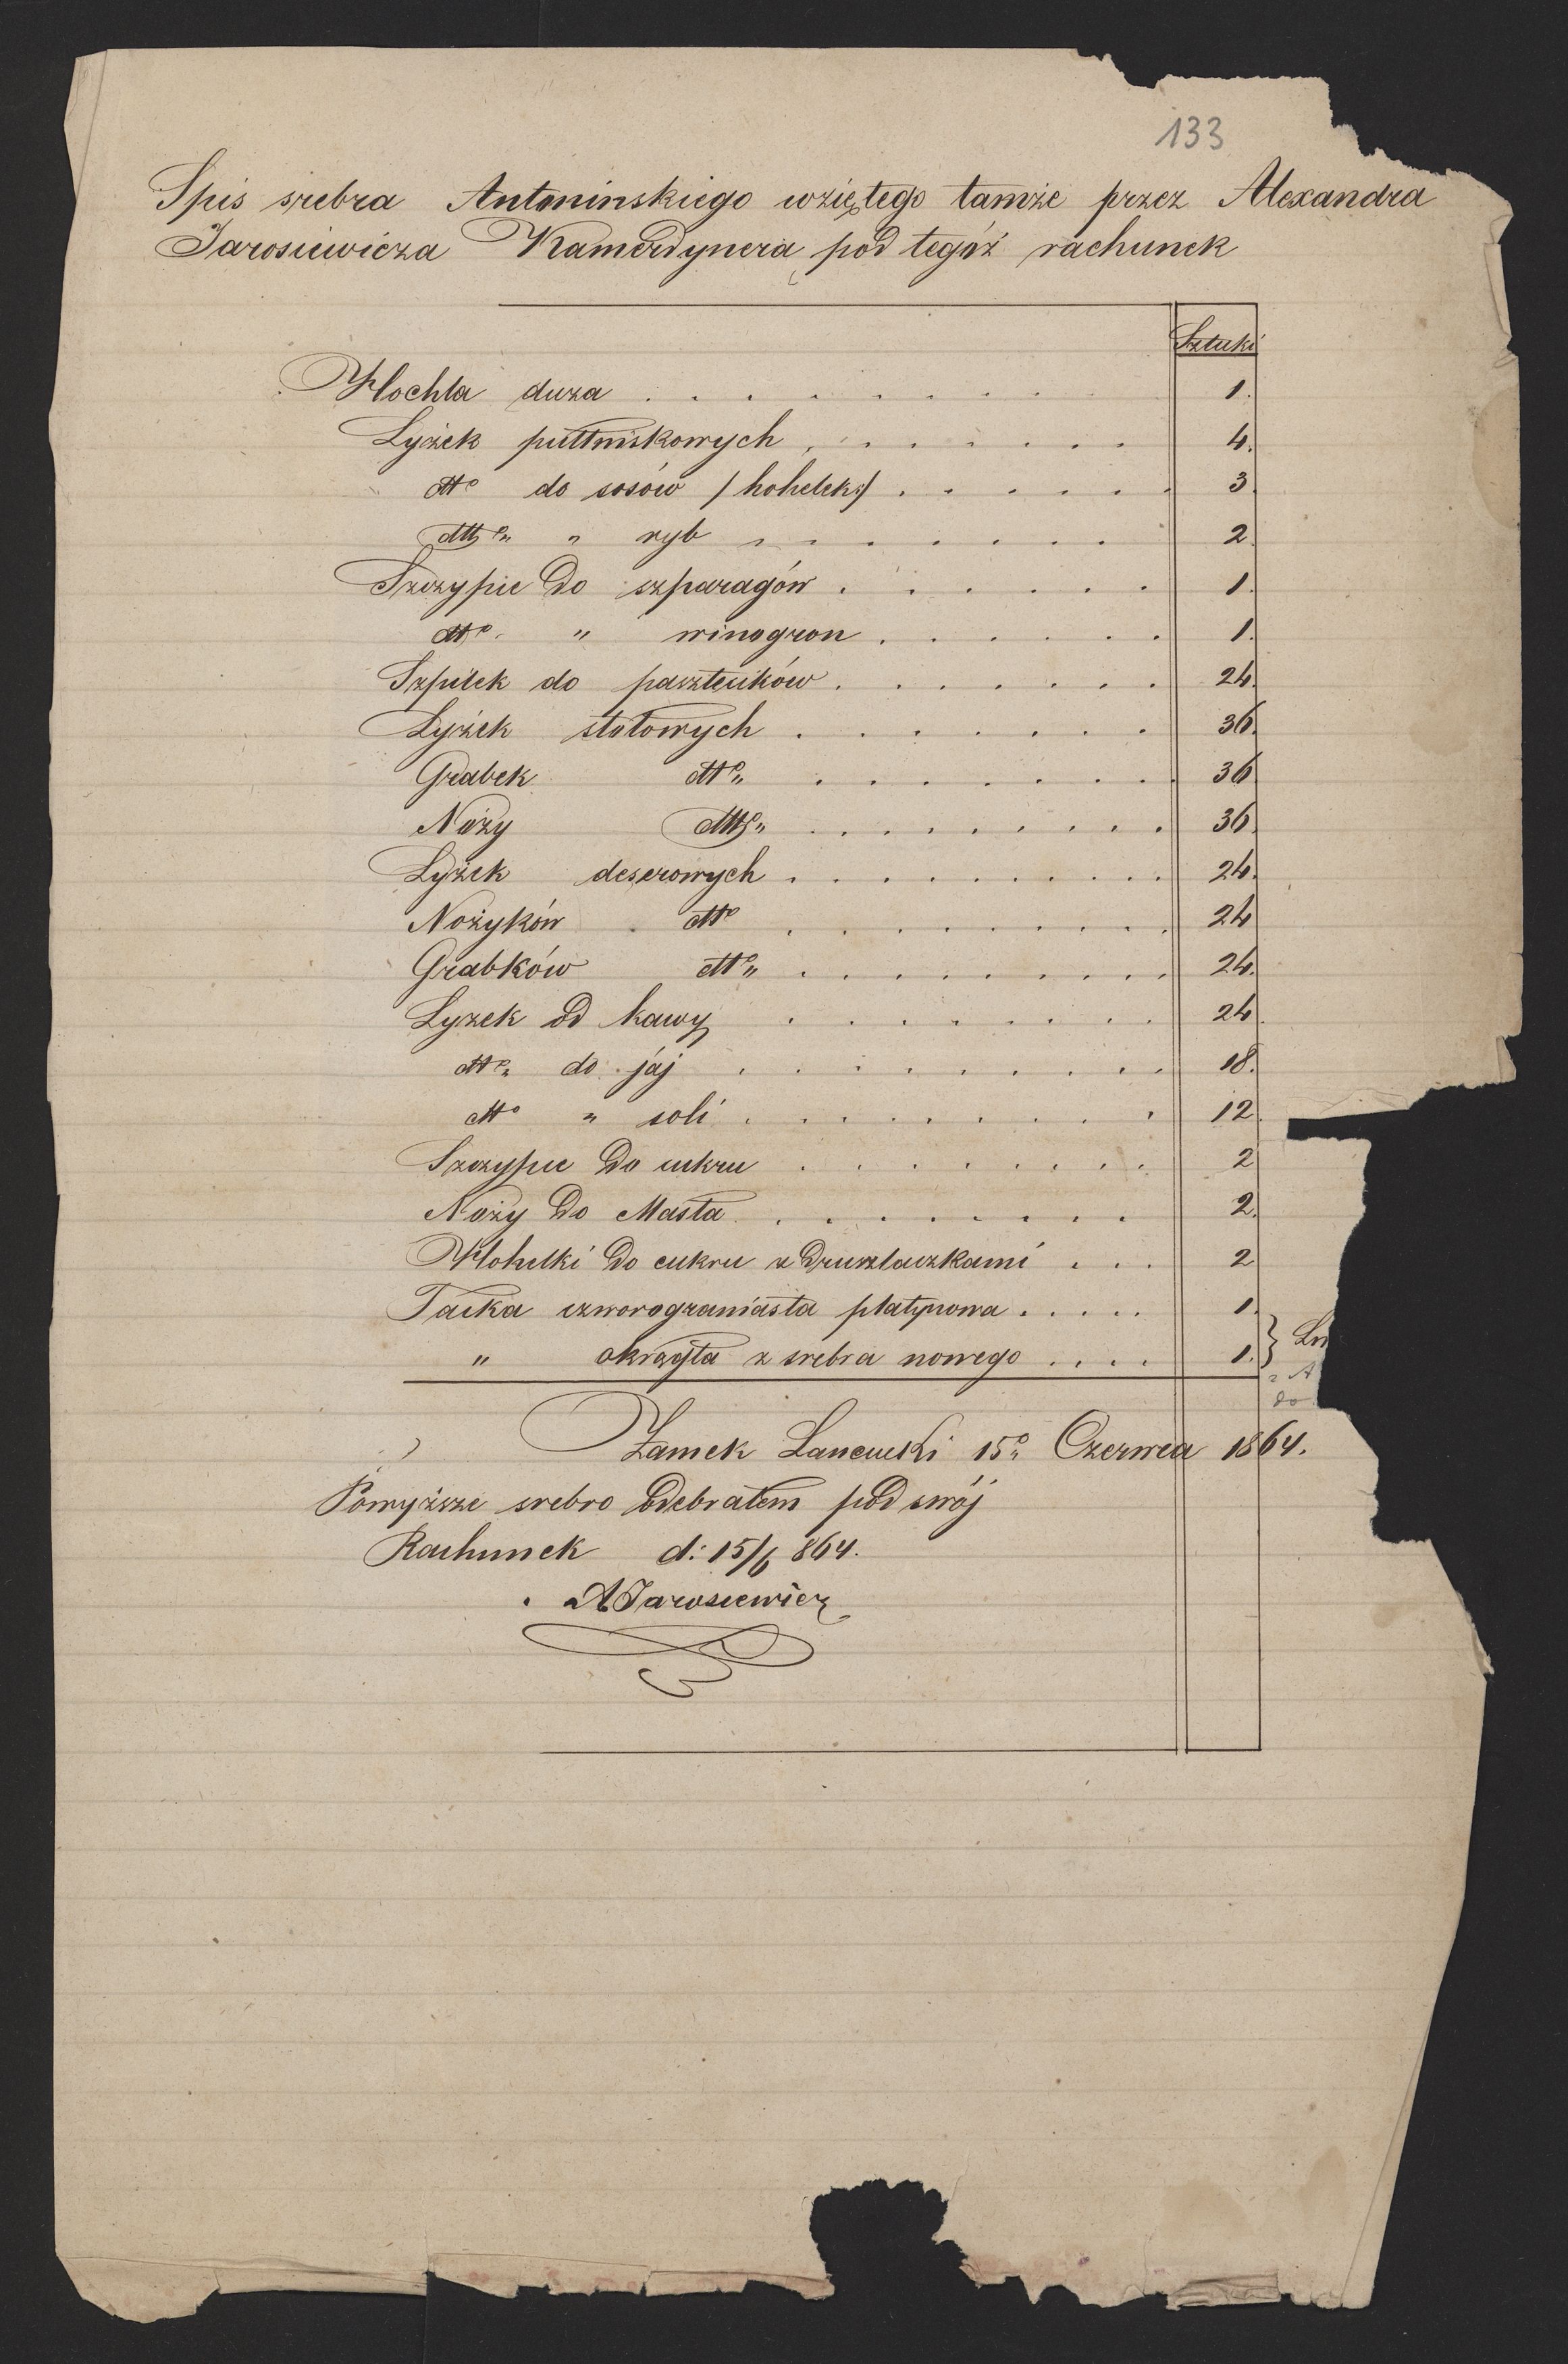 133
Spis srebra Antoninskiego wziętego tamże przez Alexandra
Jarosiewicza Kamerdynera pod tegóż rachunek
Sztuki
Hochla duża . . . . . . . . . 1.
Łyżek półmiskowych . . . . . . . 4.
dtto do sosów /hohelek/ . . . . . . 3.
dtto „ ryb . . . . . . . 2.
Szczypie do szparagów . . . . . . 1.
dtto „ winogron . . . . . . 1.
Szpilek do pasztecików . . . . . . . 24.
Łyżek stołowych . . . . . . . 36.
Grabek dtto „ . . . . . . . . 36
Noży dtto „ . . . . . . . . . 36.
Łyżek deserowych . . . . . . . . . . 24.
Nożyków dtto . . . . . . . . . 24
Grabków dtto „ . . . . . . . . . 24.
Lyzek od kawy . . . . . . . . 24.
dtto „ do jaj . . . . . . . . . 18.
dtto „ soli . . . . . . . . . 12.
Szczypie do cukru . . . . . . . . 2
Noży do Masła . . . . . . . . 2.
Hohelki do cukru z druszlaczkami . . . 2
Tacka czworograniasta platynowa . . . . . 1.
„ okrągła z srebra nowego . . . . 1. }
do
Zamek Łancucki 15o „ Czerwca 1864.
Powyższe srebro odebrałem pod swój
Rachunek d: 15/6 864.
AJarosiewicz